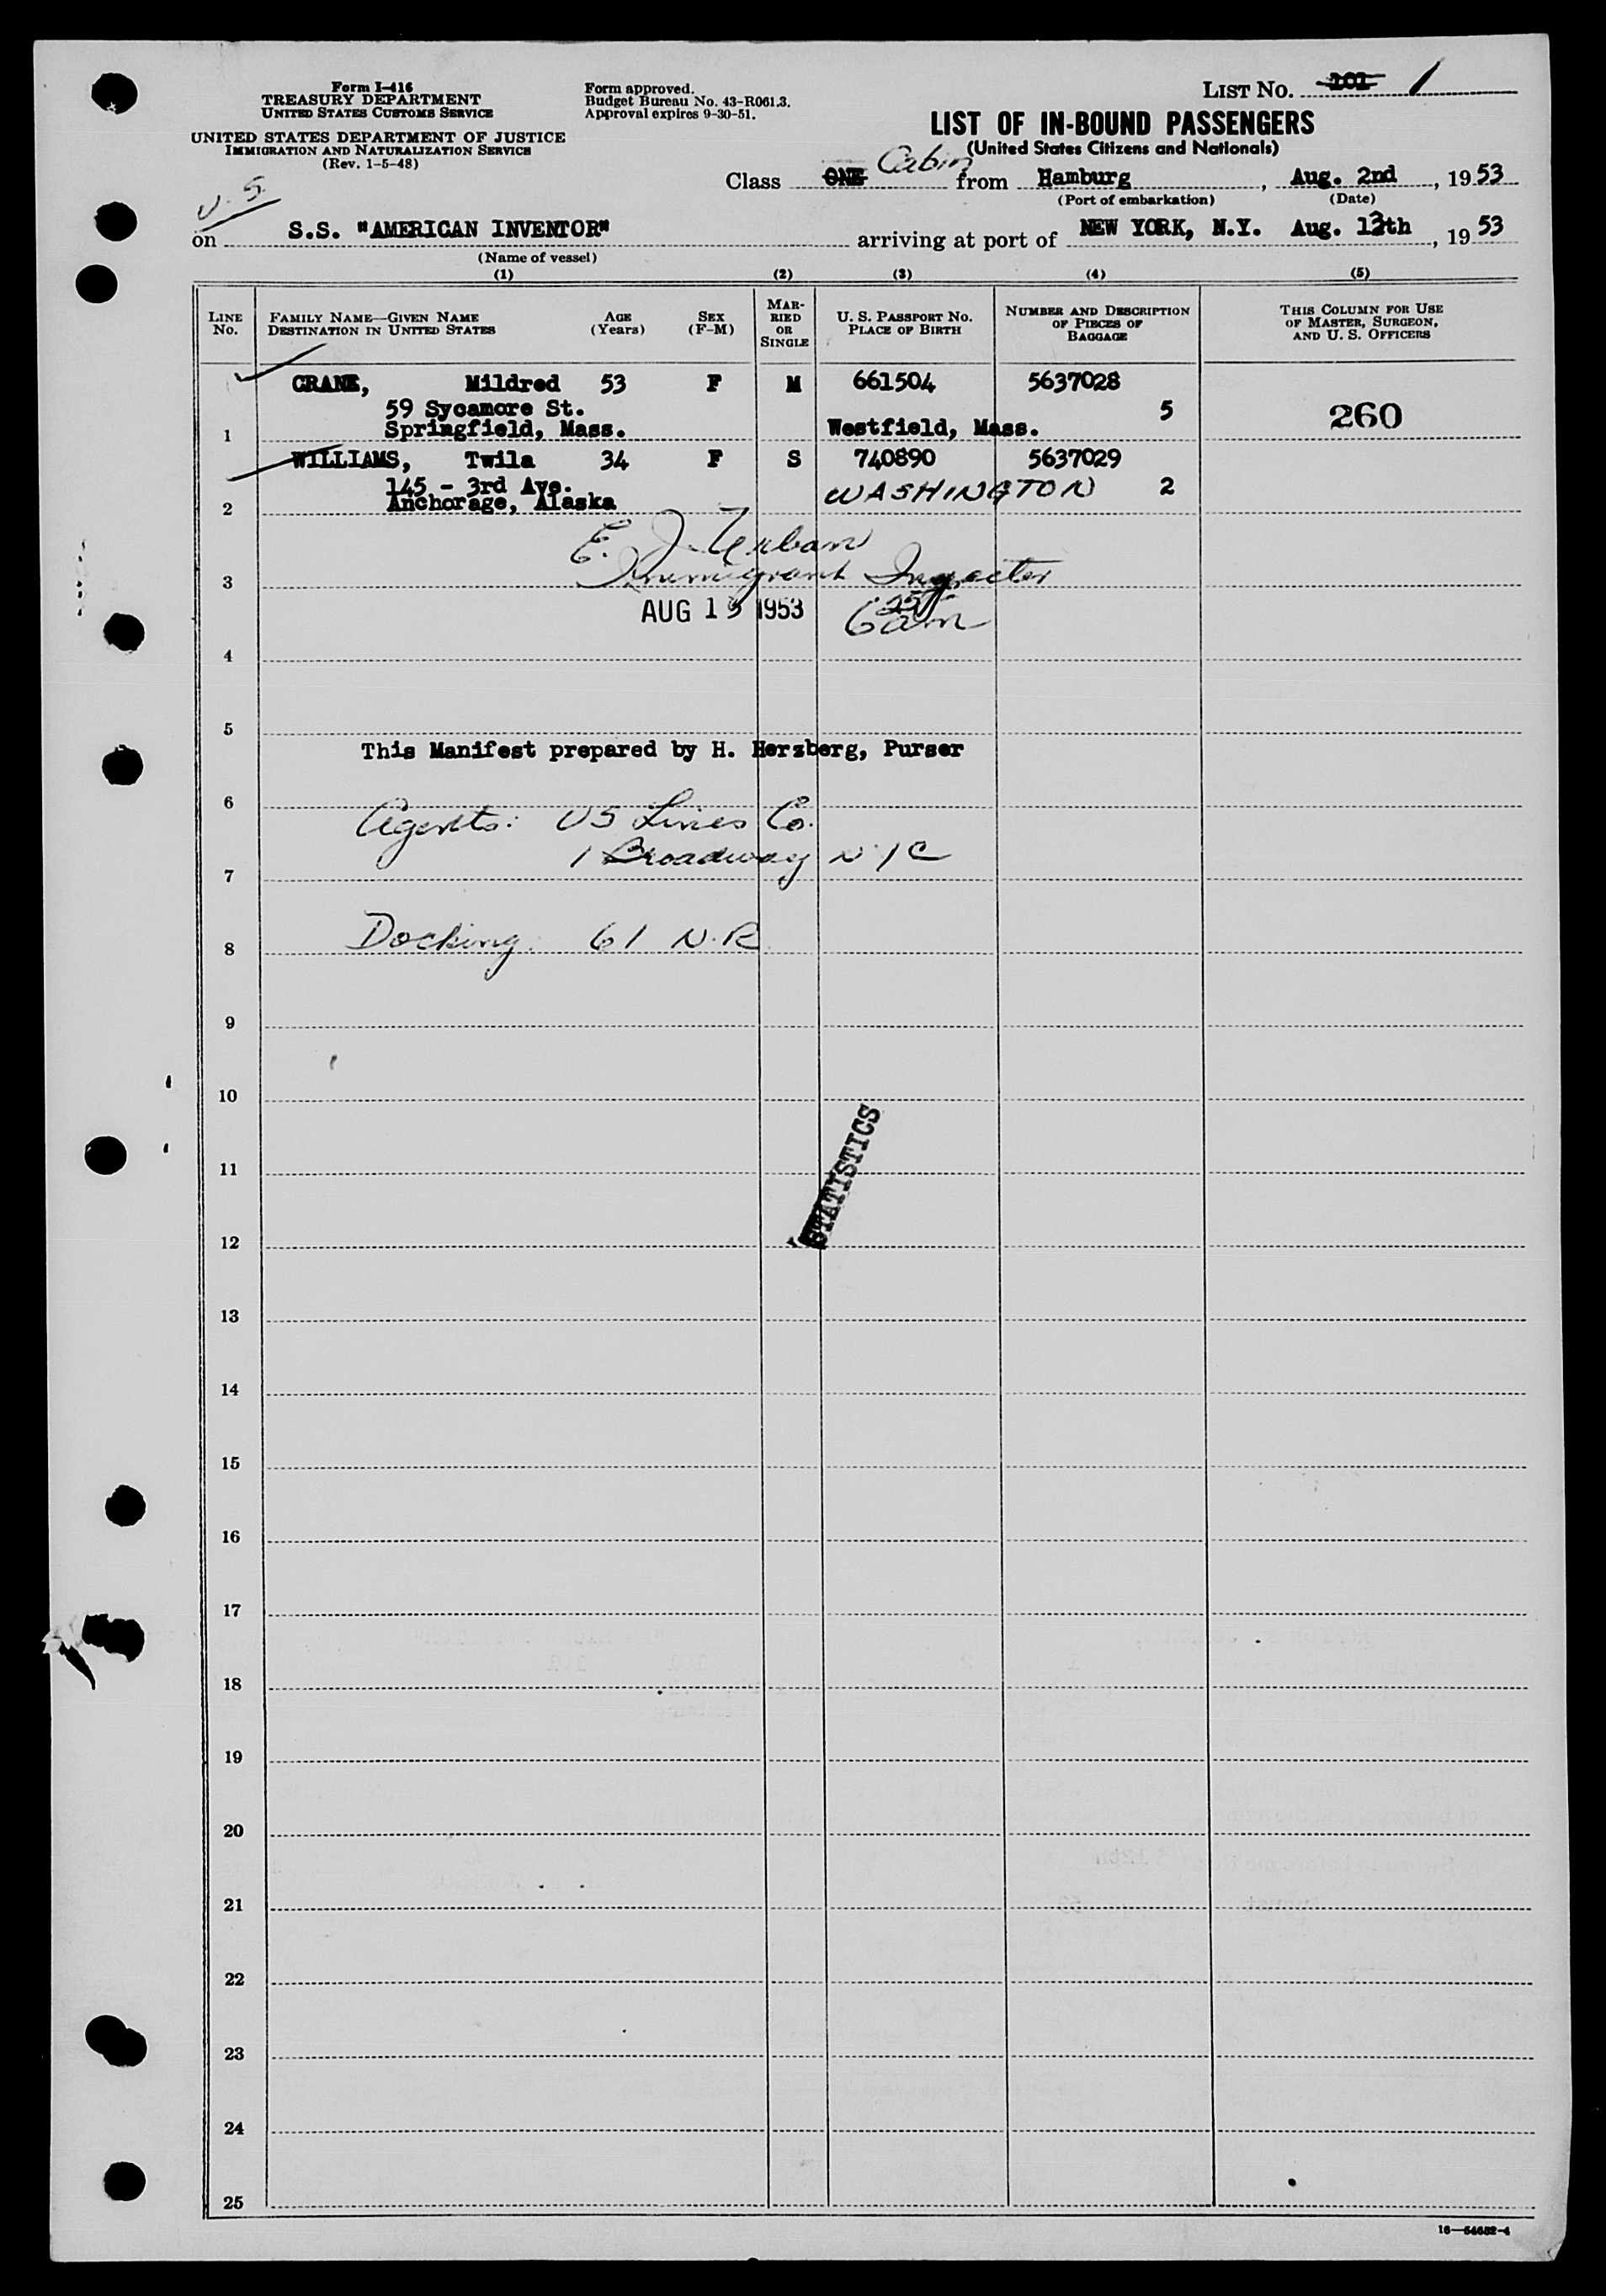 Form I-416
TREASURY DEPARTMENT
UNITED STATES CUSTOMS SERVICE
UNITED STATES DEPARTMENT OF JUSTICE
IMMIGRATION AND NATURALIZATION SERVICE
(Rev. 1-5-48)
Form approved.
Budget Bureau No. 43-R061.3.
Approval expires 9-30-51.
LIST No. 101 1
LIST OF IN-BOUND PASSENGERS
(United States Citizens and Nationals)
Class ONE Cabin from Hamburg, Aug. 2nd, 1953
(Port of embarkation) (Date)
U.S.
on S.S. "AMERICAN INVENTOR" arriving at port of NEW YORK, N.Y. Aug. 13th, 1953
(Name of vessel)
(1) (2) (3) (4) (5)
LINE No. FAMILY NAME—GIVEN NAME DESTINATION IN UNITED STATES AGE (Years) SEX (F-M) MARRIED OR SINGLE U. S. PASSPORT No. PLACE OF BIRTH NUMBER AND DESCRIPTION OF PIECES OF BAGGAGE THIS COLUMN FOR USE OF MASTER, SURGEON, AND U. S. OFFICERS
CRANE, Mildred 53 F M 661504 5637028
59 Sycamore St. 5 260
1 Springfield, Mass. Westfield, Mass.
WILLIAMS, Twila 34 F S 740890 5637029
145 - 3rd Ave. WASHINGTON 2
2 Anchorage, Alaska
E. J. Urban
3 Immigrant Inspector
AUG 13 1953 6 25 am
4
5
This Manifest prepared by H. Herzberg, Purser
6
Agents: US Lines Co.
1 Broadway NYC
7
8 Docking: 61 N.R.
9
10
11
STATISTICS
12
13
14
15
16
17
18
19
20
21
22
23
24
25
16—54682-4